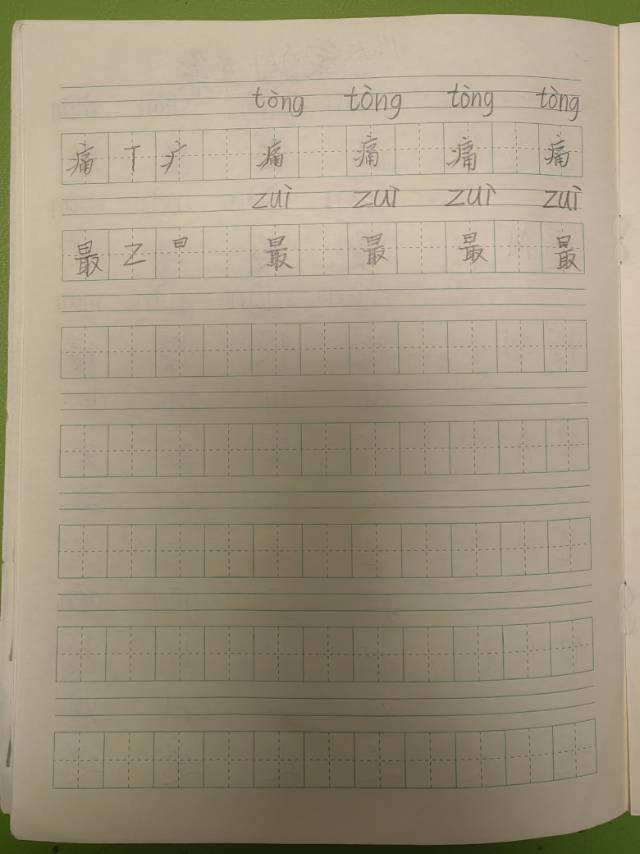 tòng tòng tòng tòng
痛 丅 疒 痛 痛 痛 痛
zuì zuì zuì zuì
最 Z 日 最 最 最 最